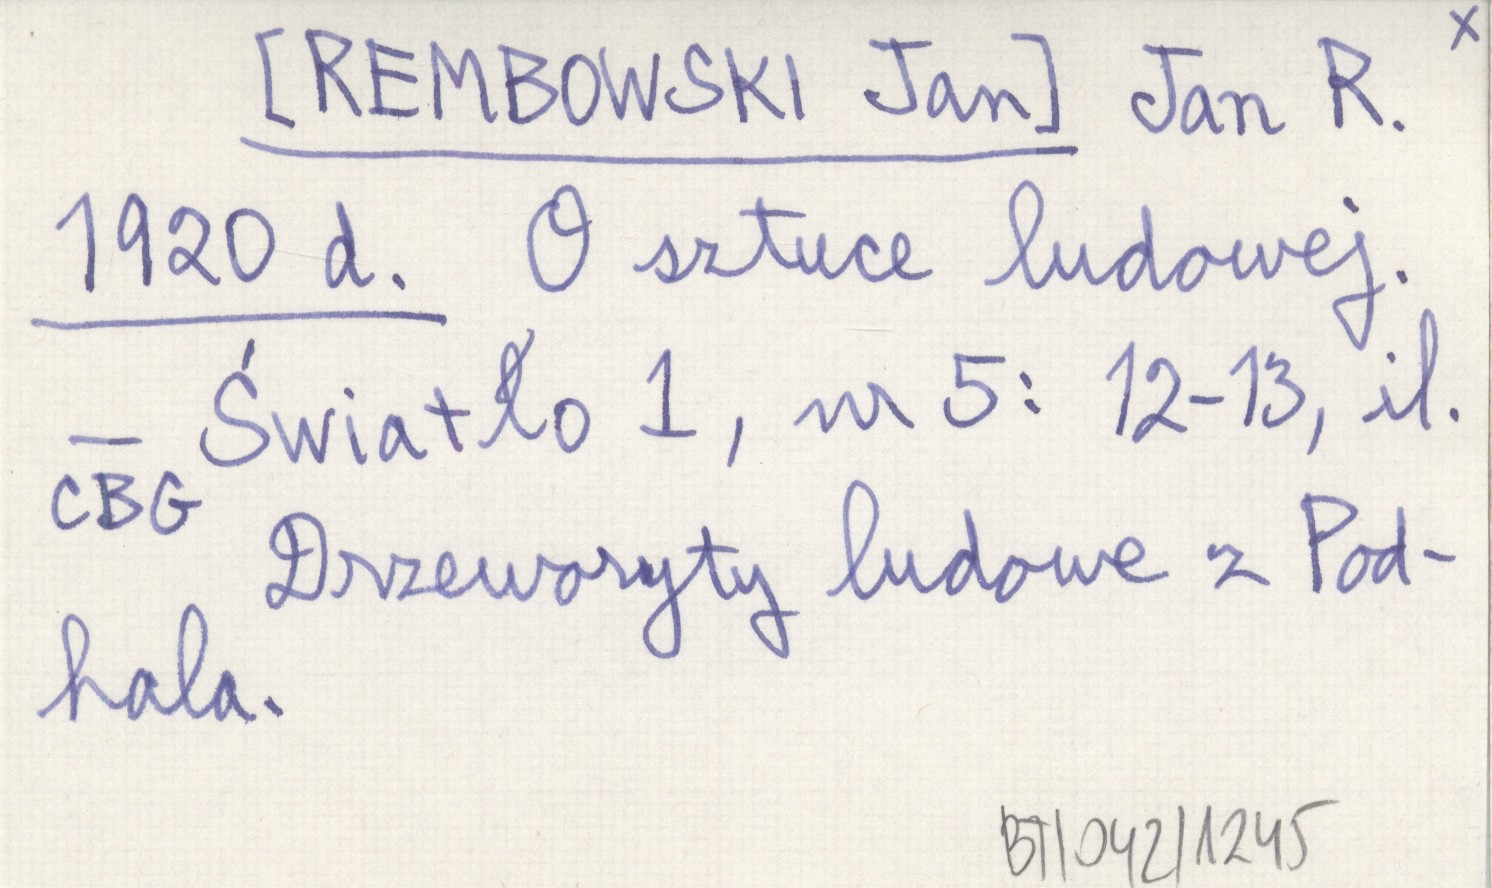 x
[REMBOWSKI Jan] Jan R.
1920 d. O sztuce ludowej.
— Światło 1, nr 5: 12-13, il.
CBG
Drzeworyty ludowe z Pod-
hala.
BT/042/1245